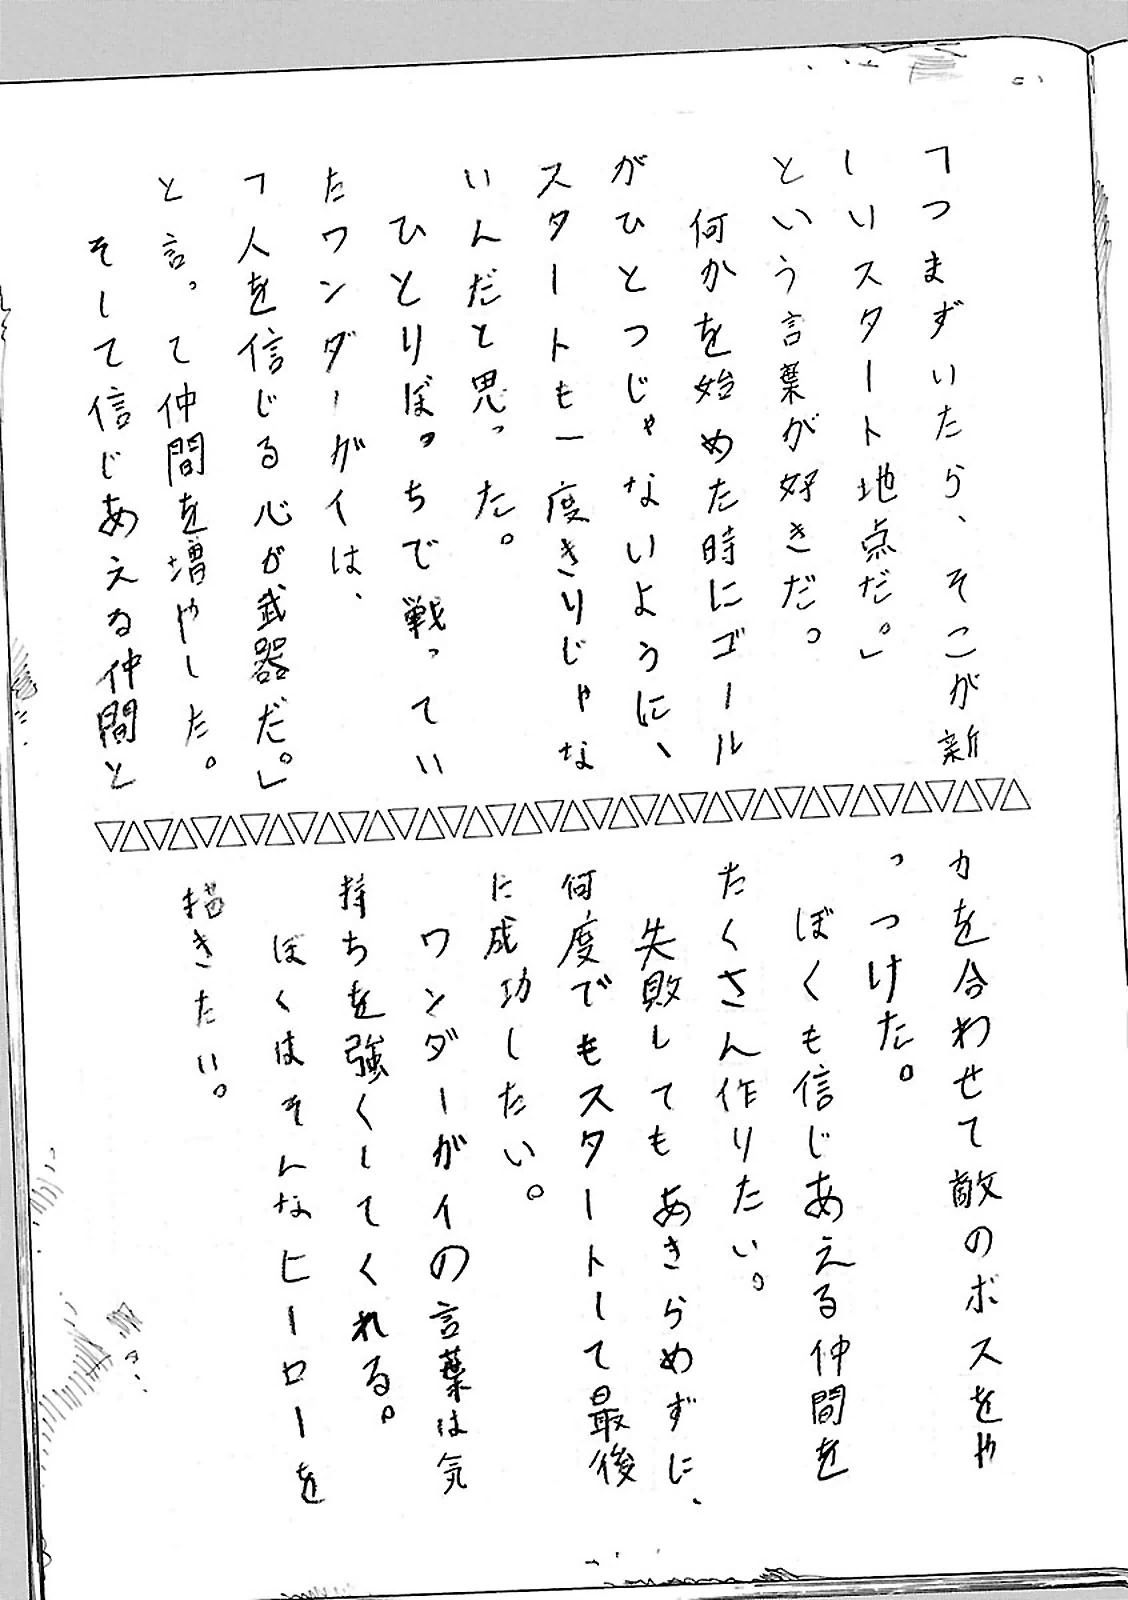 「つまずいたら、そこが新
しいスタート地点だ。」
という言葉が好きだ。
何かを始めた時にゴール
がひとつじゃないように、
スタートも一度きりじゃな
いんだと思った。
ひとりぼっちで戦ってい
たワンダーガイは、
「人を信じる心が武器だ。」
と言って仲間を増やした。
そして信じあえる仲間と
力を合わせて敵のボスをや
っつけた。
ぼくも信じあえる仲間を
たくさん作りたい。
失敗してもあきらめずに、
何度でもスタートして最後
に成功したい。
ワンダーガイの言葉は気
持ちを強くしてくれる。
ぼくはそんなヒーローを
描きたい。